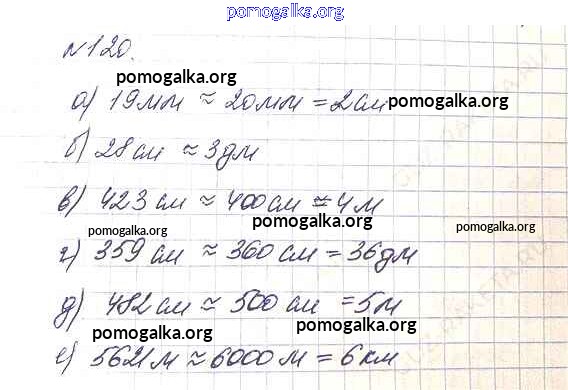 pomogalka.org
№120.
pomogalka.org
а) 19мм ≈ 20мм = 2см
pomogalka.org
б) 28см ≈ 3дм
в) 423см ≈ 400см = 4м
pomogalka.org
pomogalka.org
pomogalka.org
г) 359см ≈ 360см = 36дм
д) 482см ≈ 500см = 5м
pomogalka.org
pomogalka.org
е) 5621м ≈ 6000м = 6км
pomogalka.org